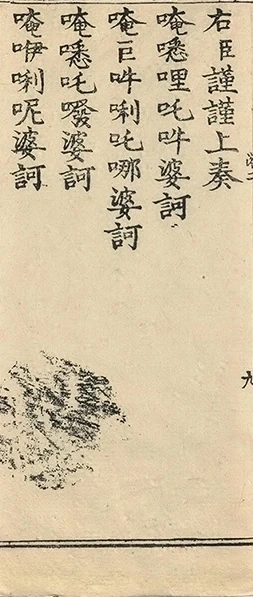 右臣謹謹上奏
唵㘄哩吒吽娑訶
唵巨吽唎吒哪婆訶
唵㘄吒㗶婆訶
唵咿唎呢婆訶
九